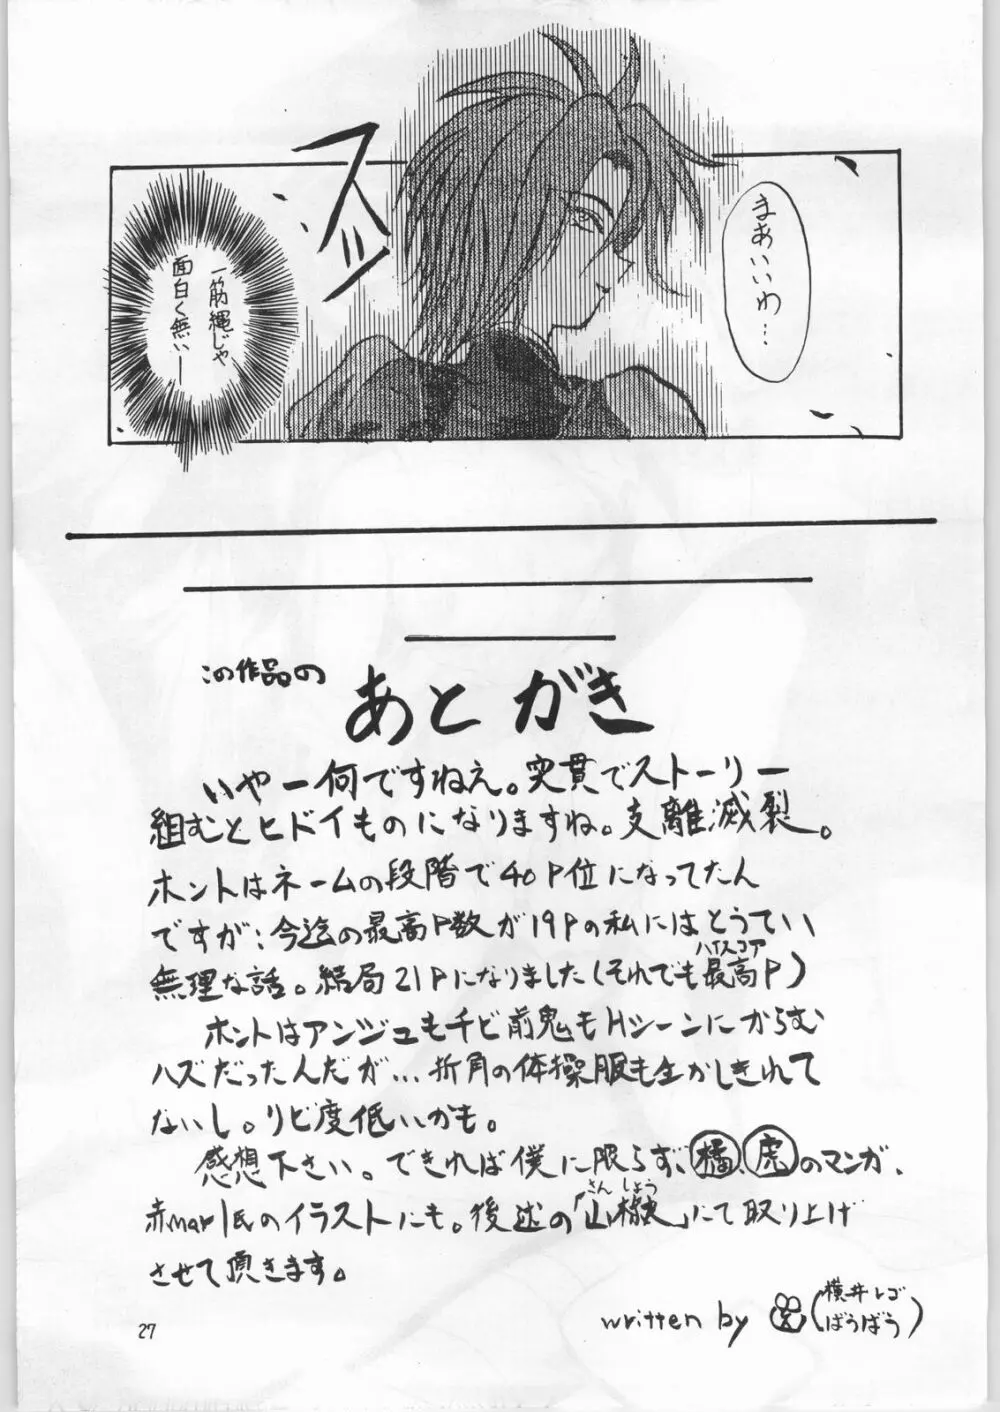 まあいいわ…
スッ
一筋縄じゃ
面白く無い―
この作品の
あとがき
いやー何ですねえ。突貫でストーリー
組むとヒドイものになりますね。支離滅裂。
ホントはネームの段階で40P位になってたん
ですが、今迄の最高P数が19Pの私にはとうてい
ハイスコア
無理な話。結局21Pになりました(それでも最高P)
ホントはアンジュも千ビ前鬼もHシーンにからむ
ハズだったんだが…折角の体操服も生かしきれて
ないし。リビ度低いかも。
感想下さい。できれば僕に限らず、橘、虎のマンガ、
さんしょう
赤mar氏のイラストにも。後述の「山椒」にて取り上げ
させて頂きます。
written by (横井レゴ
ばうばう)
27